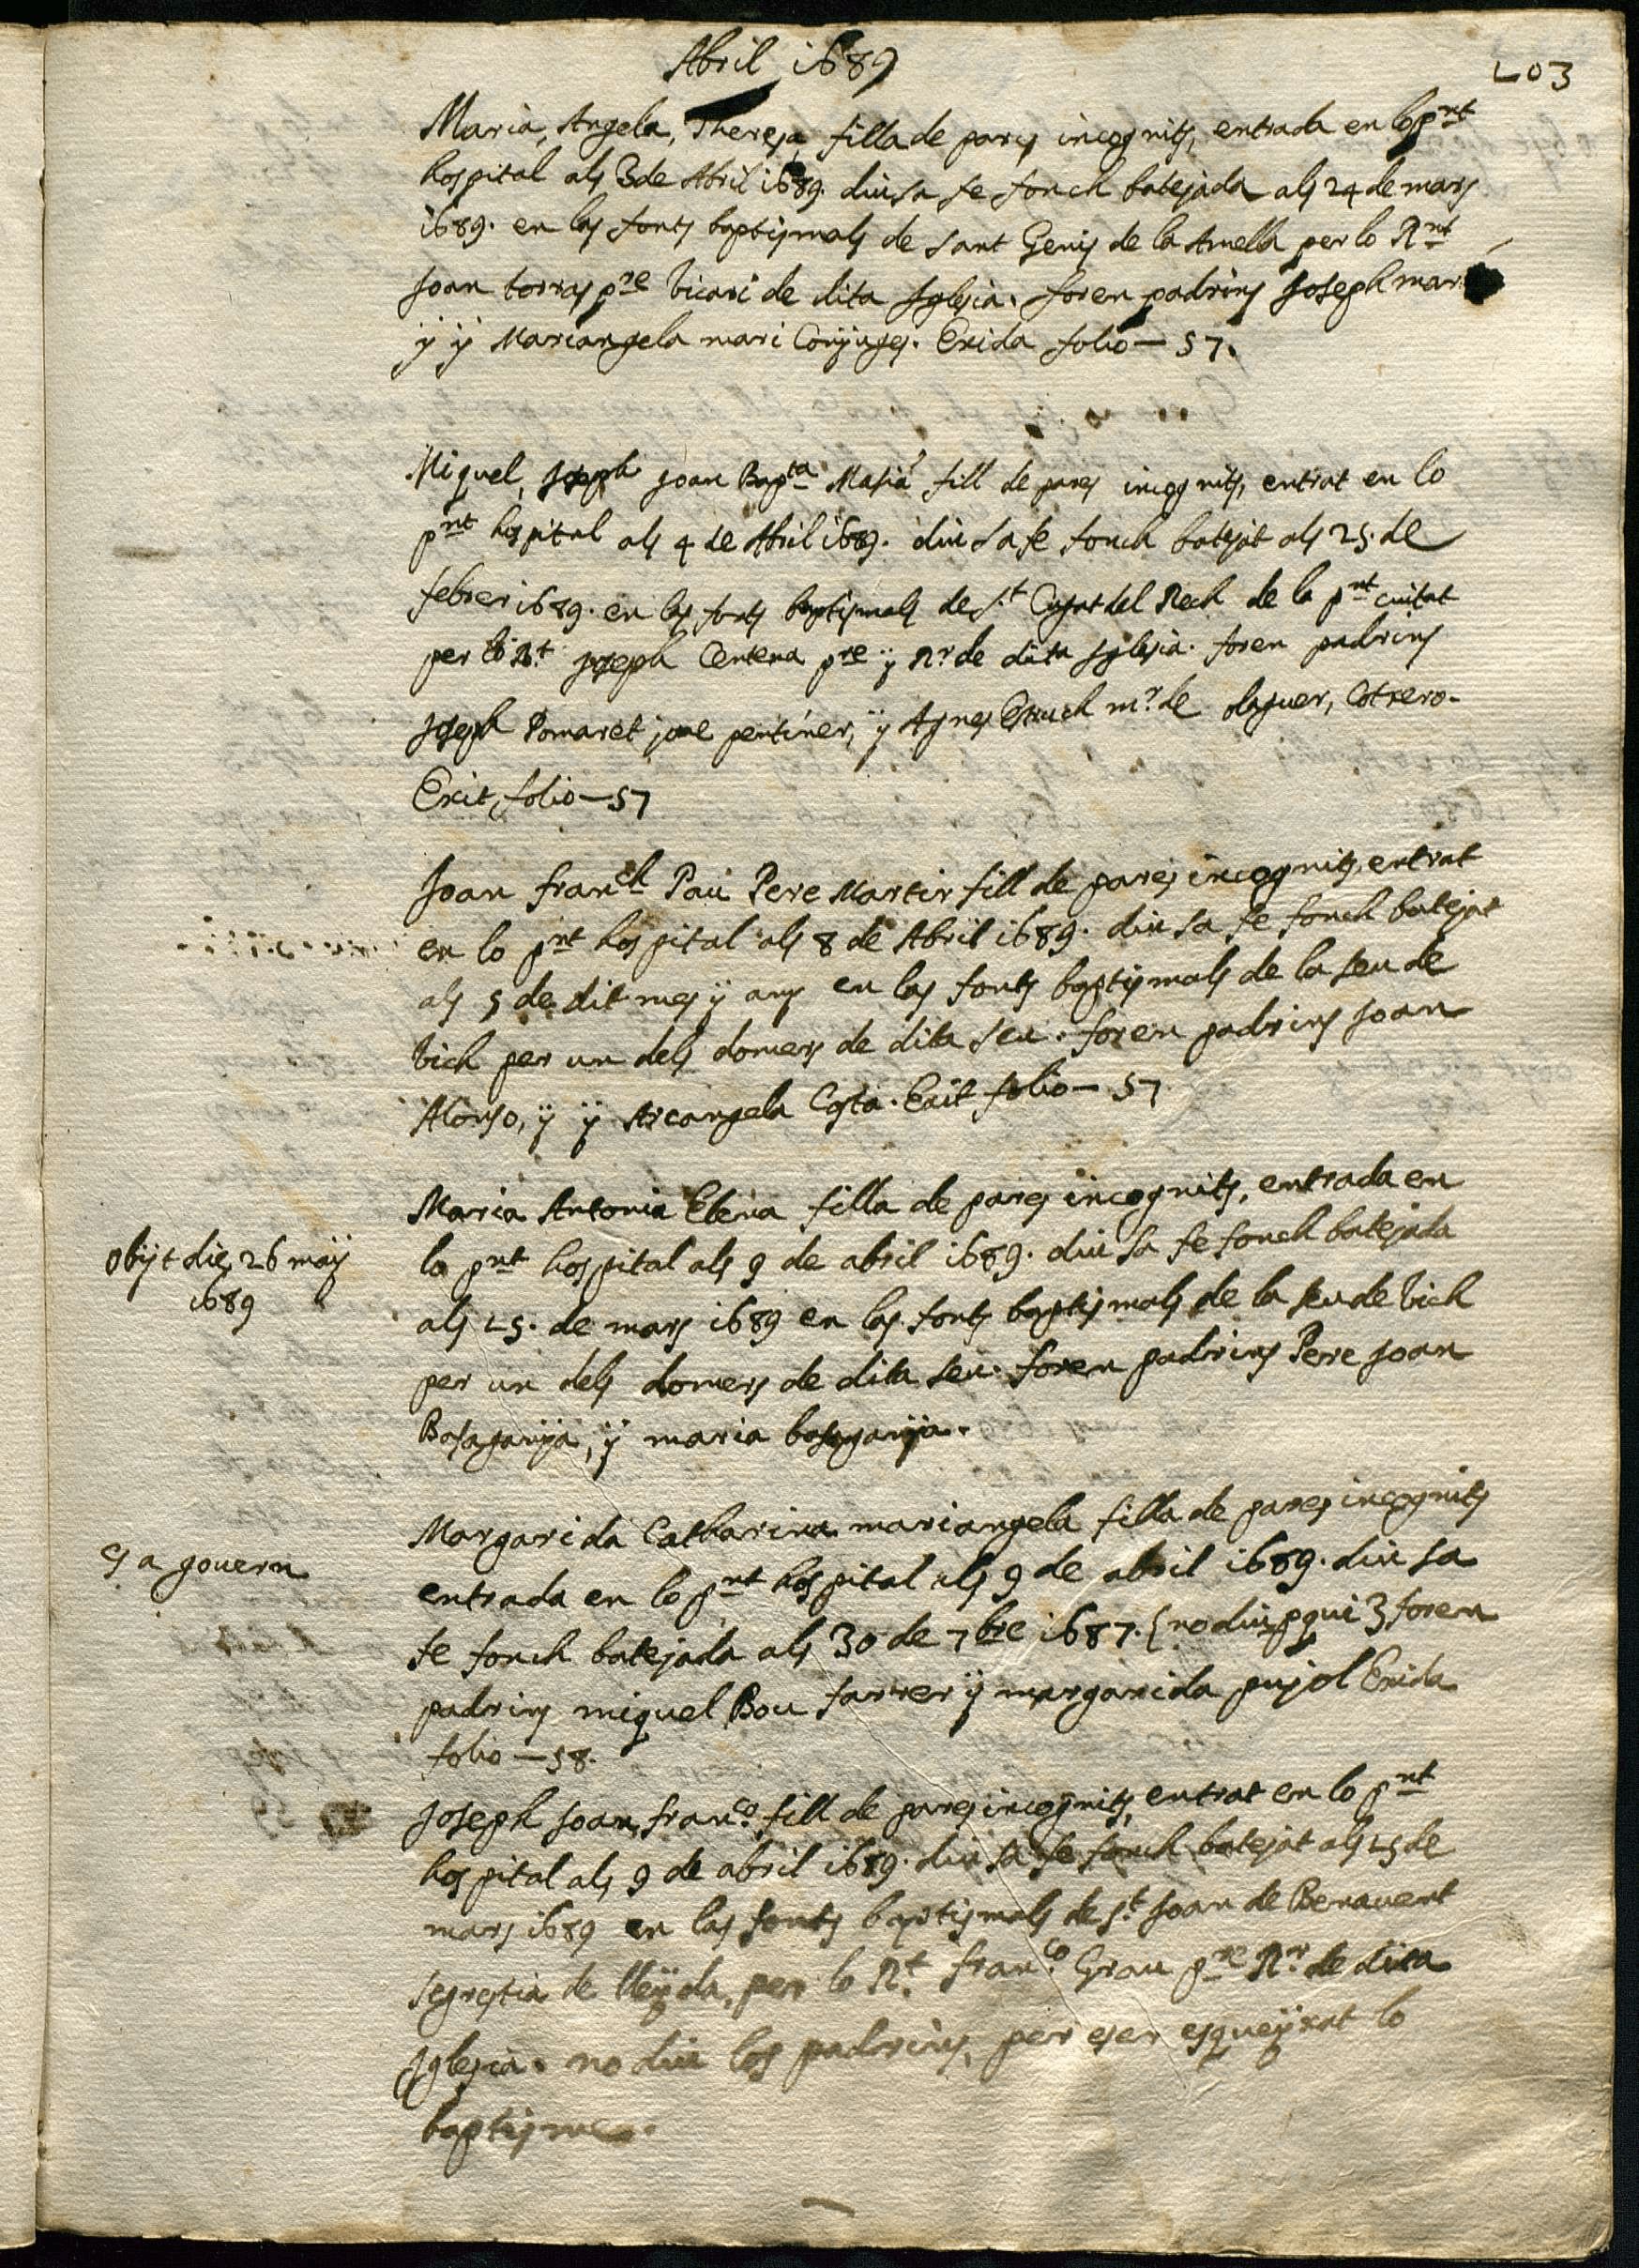 Abril 1689
203
Maria, Angela, Theresa, filla de pares incognits, entrada en lo pnt
hospital als 3 de Abril 1689. diu sa fe fonch batejada als 24 de mars
1689. en las fonts baptismals de sant Genis de la Amella per lo Rnt
Joan torras pre Vicari de dita Iglesia. foren padrins Joseph mari
ÿ ÿ Mariangela mari Conjuges. Exida folio — 57.
Miquel, Joseph Joan Bapta Masia fill de pares incognits, entrat en lo
pnt hospital als 4 de Abril 1689. diu sa fe fonch batejat als 25. de
febrer 1689. en las fonts baptismals de St Cugat del Rech de la pnt ciutat
per lo Rt Joseph Centena pre ÿ Rr de dita Iglesia. foren padrins
Joseph Pomaret jove pentiner, ÿ Agnes Estruch mr de olaguer, Cotxero.
Exit, folio — 57
Joan franch Pau Pere Martir fill de pares incognits, entrat
en lo pnt hospital als 8 de Abril 1689. diu sa fe fonch batejat
als 5 de dit mes ÿ any en las fonts baptismals de la seu de
Vich per un dels domers de dita seu. foren padrins Joan
Alonso, ÿ ÿ Arcangela Costa. Exit folio — 57
obijt die 26 maÿ
1689
Maria Antonia Elena filla de pares incognits, entrada en
lo pnt hospital als 9 de abril 1689. diu sa fe fonch batejada
als 25. de mars 1689 en las fonts baptismals de la seu de Vich
per un dels domers de dita seu. foren padrins Pere Joan
Basaganÿa, ÿ maria basaganÿa.
es a govern
Margarida Catharina mariangela filla de pares incognits
entrada en lo pnt hospital als 9 de abril 1689. diu sa
fe fonch batejada als 30 de 7bre 1687. { no diu p qui } foren
padrins miquel Bou farrer ÿ margarida pujol Exida
folio — 58.
Joseph Joan franco fill de pares incognits, entrat en lo pnt
hospital als 9 de abril 1689. diu sa fe fonch batejat als 25 de
mars 1689 en las fonts baptismals de St Joan de Benavent
segrestia de lleÿda, per lo Rt franco Grau pre Rr de dita
Iglesia. no diu los padrins, per eser esqueÿxat lo
baptisme.